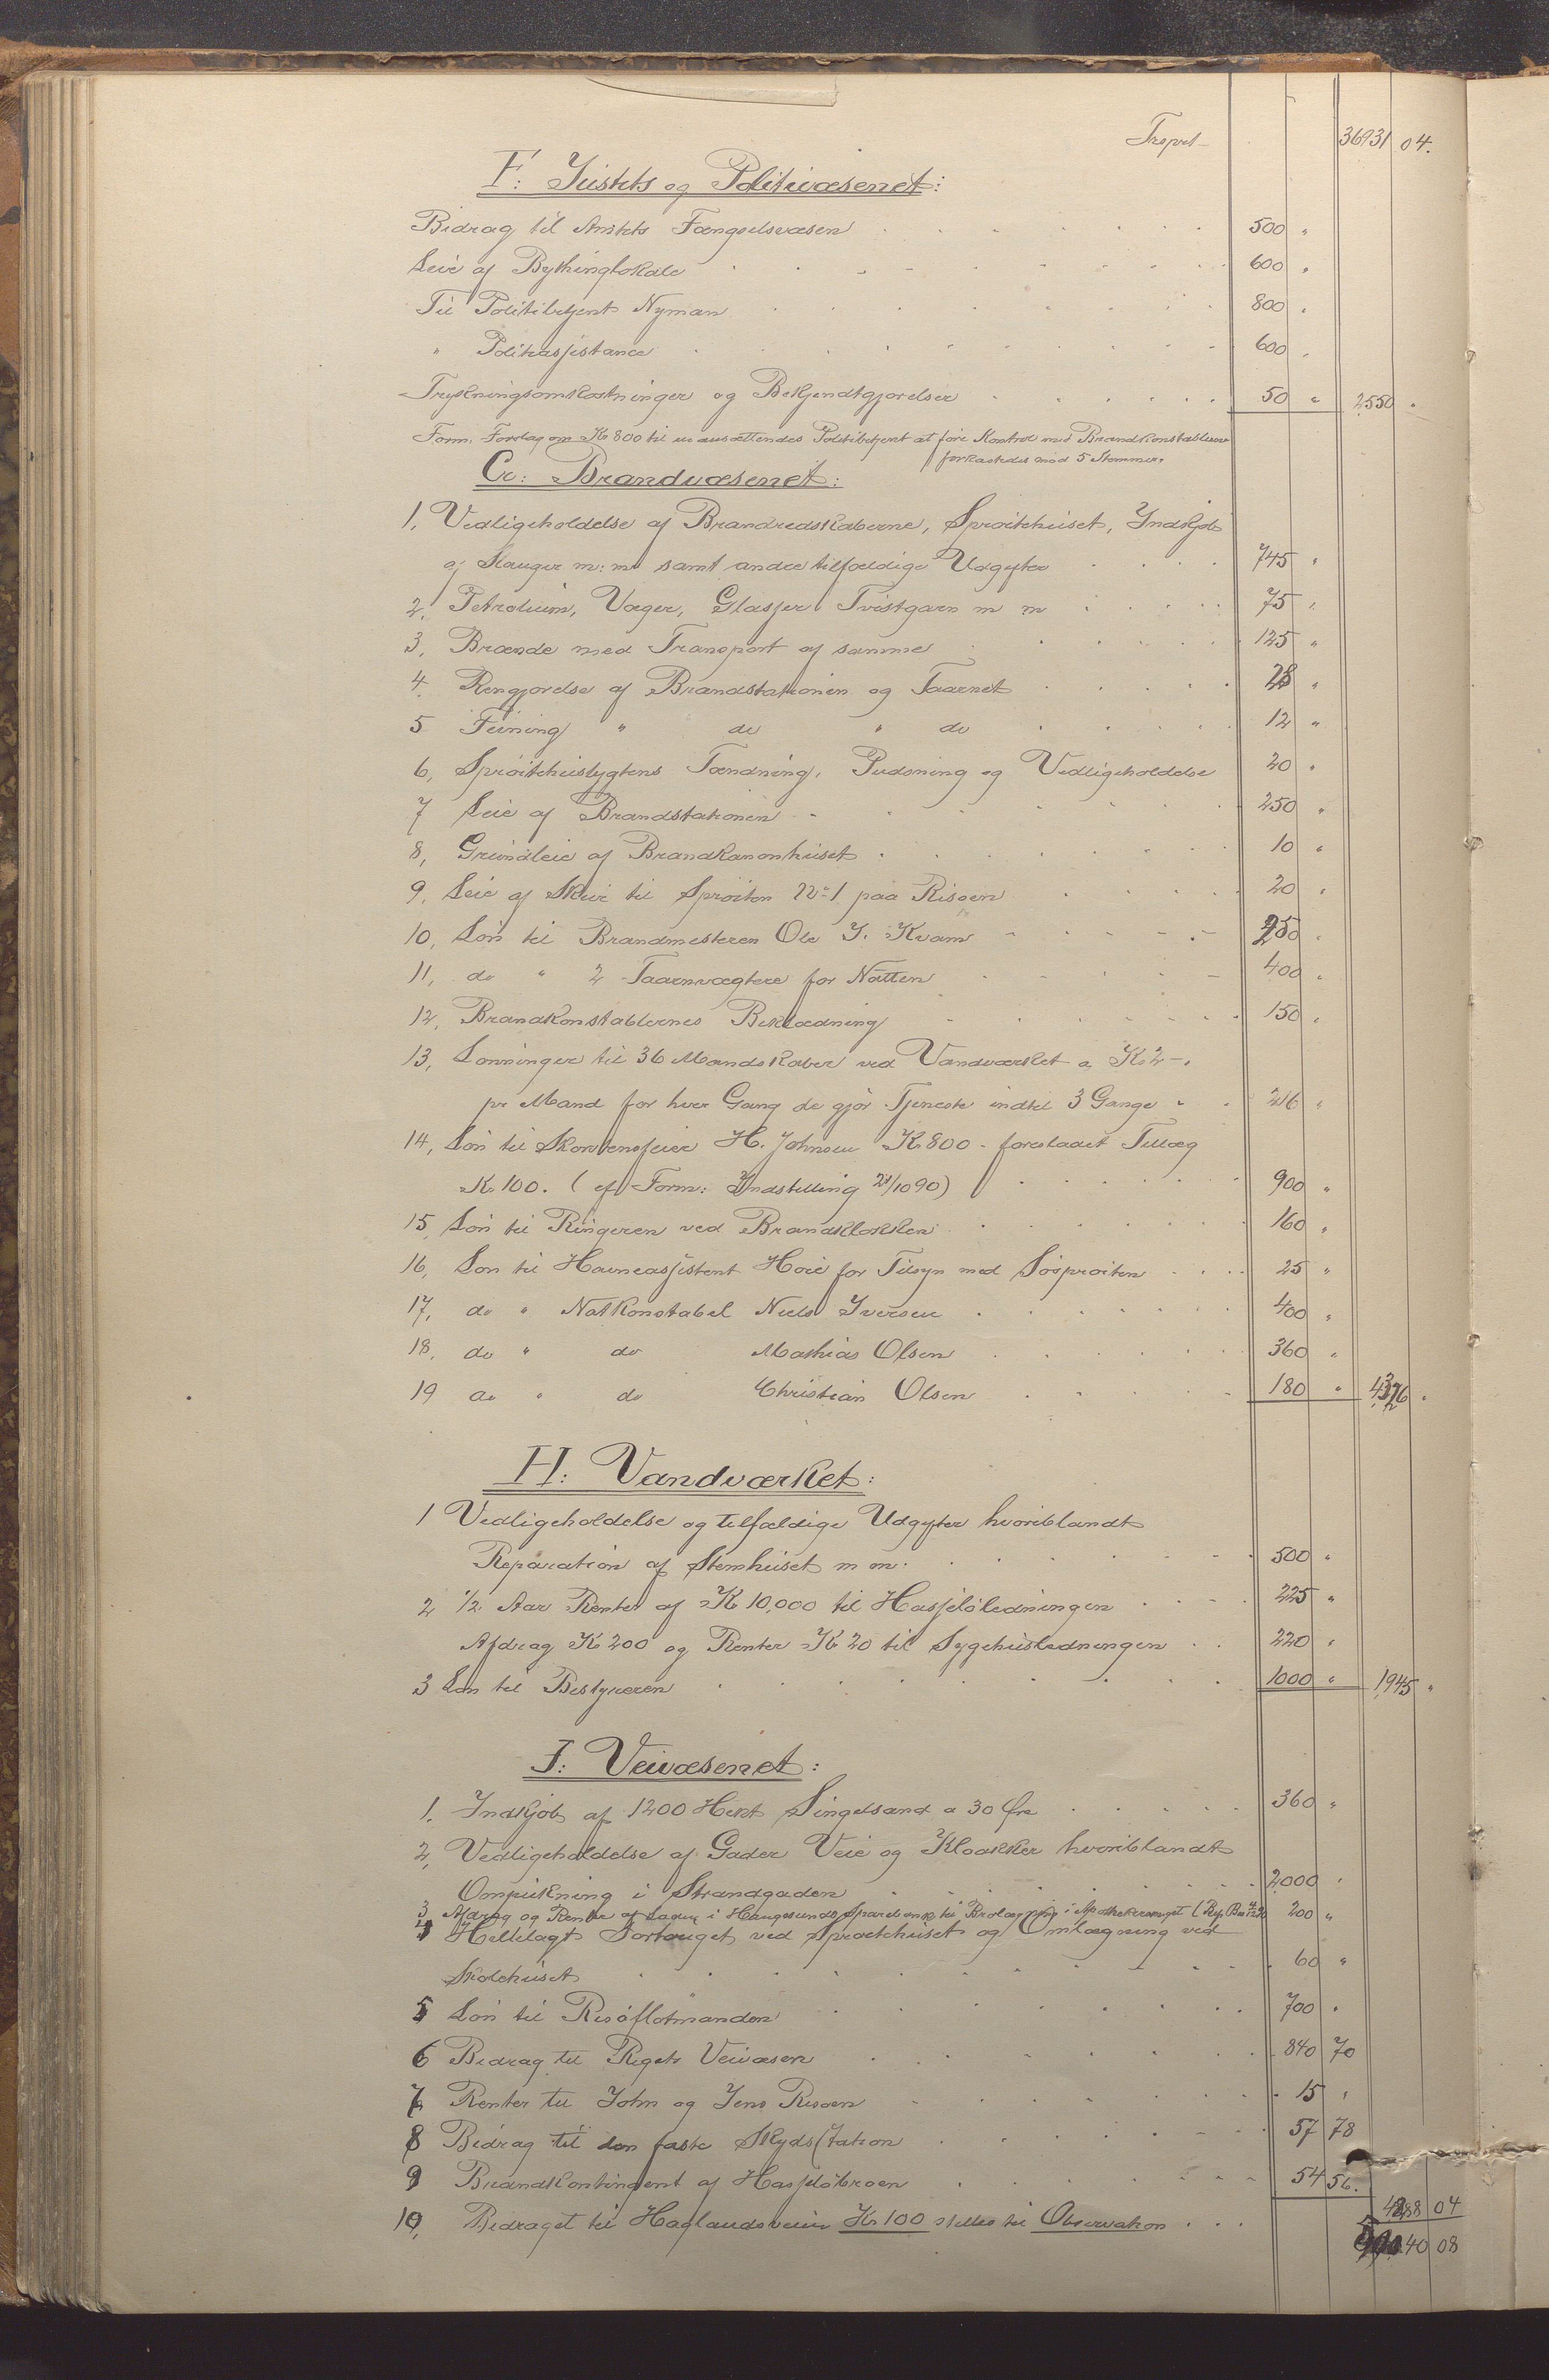 Trsprt 36931 04.
F: Justits og Politivæsenet:
Bidrag til Amtets Fængselsvæsen 500 "
Leie af Bythinglokale 600 "
Til Politibetjent Nyman 800 "
" Politiassistance 600 "
Trykningsomkostninger og Bekjendtgjørelser 50 " 2550 "
Form. Forslag om Kr 800 til en ansættendes Politibetjent at føre Kontrol med Brandkonstablerne
forkastedes mod 5 Stemmer.
G: Brandvæsenet:
1, Vedligeholdelse af Brandredskaberne, Sprøitehuset, Indkjøb
af Slanger m: m samt andre tilfældige Udgifter 745 "
2, Petroleum, Væger, Glasser Tvistgarn m m 75 "
3, Brænde med Transport af samme 125 "
4. Rengjørelse af Brandstationen og Taarnet 28 "
5 Feining " do " do 12 "
6, Sprøitehuslygtens Tændning, Pudsning og Vedligeholdelse 20 "
7 Leie af Brandstationen 250 "
8, Grundleie af Brandkanonhuset 10 "
9, Leie af Skur til Sprøiten No 1 paa Risøen 20 "
10, Løn til Brandmesteren Ole J. Kvam 250 "
11, do " 2 Taarnvægtere for Natten 400 "
12, Brandkonstablernes Beklædning 150 "
13, Lønninger til 36 Mandskaber ved Vandværket a Kr 2 –
pr Mand for hver Gang de gjør Tjeneste indtil 3 Gange 216 "
14, Løn til Skorstensfeier H. Johnsen Kr 800 - foreslaaet Tillæg
Kr 100. (cf Form: Indstilling 21/10 90) 900 "
15, Løn til Ringeren ved Brandklokken 160 "
16, Løn til Havneassistent Høie for Tilsyn med Søsprøiten 25 "
17, do " Natkonstabel Niels Iversen 400 "
18, do " do Mathias Olsen 360 "
19 do " do Christian Olsen 180 "
H: Vandværket:
1 Vedligeholdelse og tilfældige Udgifter hvoriblandt
Reparation af Stemhuset m m. 500 "
2 1/2 Aar Renter af Kr 10,000 til Hasseløledningen 225 "
Afdrag Kr 200 og Renter Kr 20 til Sygehusledningen 220 "
3 Løn til Bestyreren 1000 " 1945 "
I: Veivæsenet:
1. Indkjøb af 1200 Hekt Singelsand a 30 Øre 360 "
2, Vedligeholdelse af Gader Veie og Kloakker hvoriblandt
Ompukning i Strandgaden 2000 "
3 Afdrag og Renter af Laanet i Haugesunds Sparebank til Brolægning i Apothekersmuget 200 "
4 Hellelagt Fortouget ved Sprøitehuset og Omlægning ved
Skolehuset 60 "
5 Løn til Risøflotmanden 700 "
6 Bidrag til Rigets Veivæsen 840 70
7 Renter til John og Jens Risøen 15 "
8 Bidrag til den faste Skydsstation 57 78
9 Brandkontingent af Hasseløbroen 54 56.
4288 04
10, Bidraget til Haglandsveien Kr 100 stilles til Observation
40 08